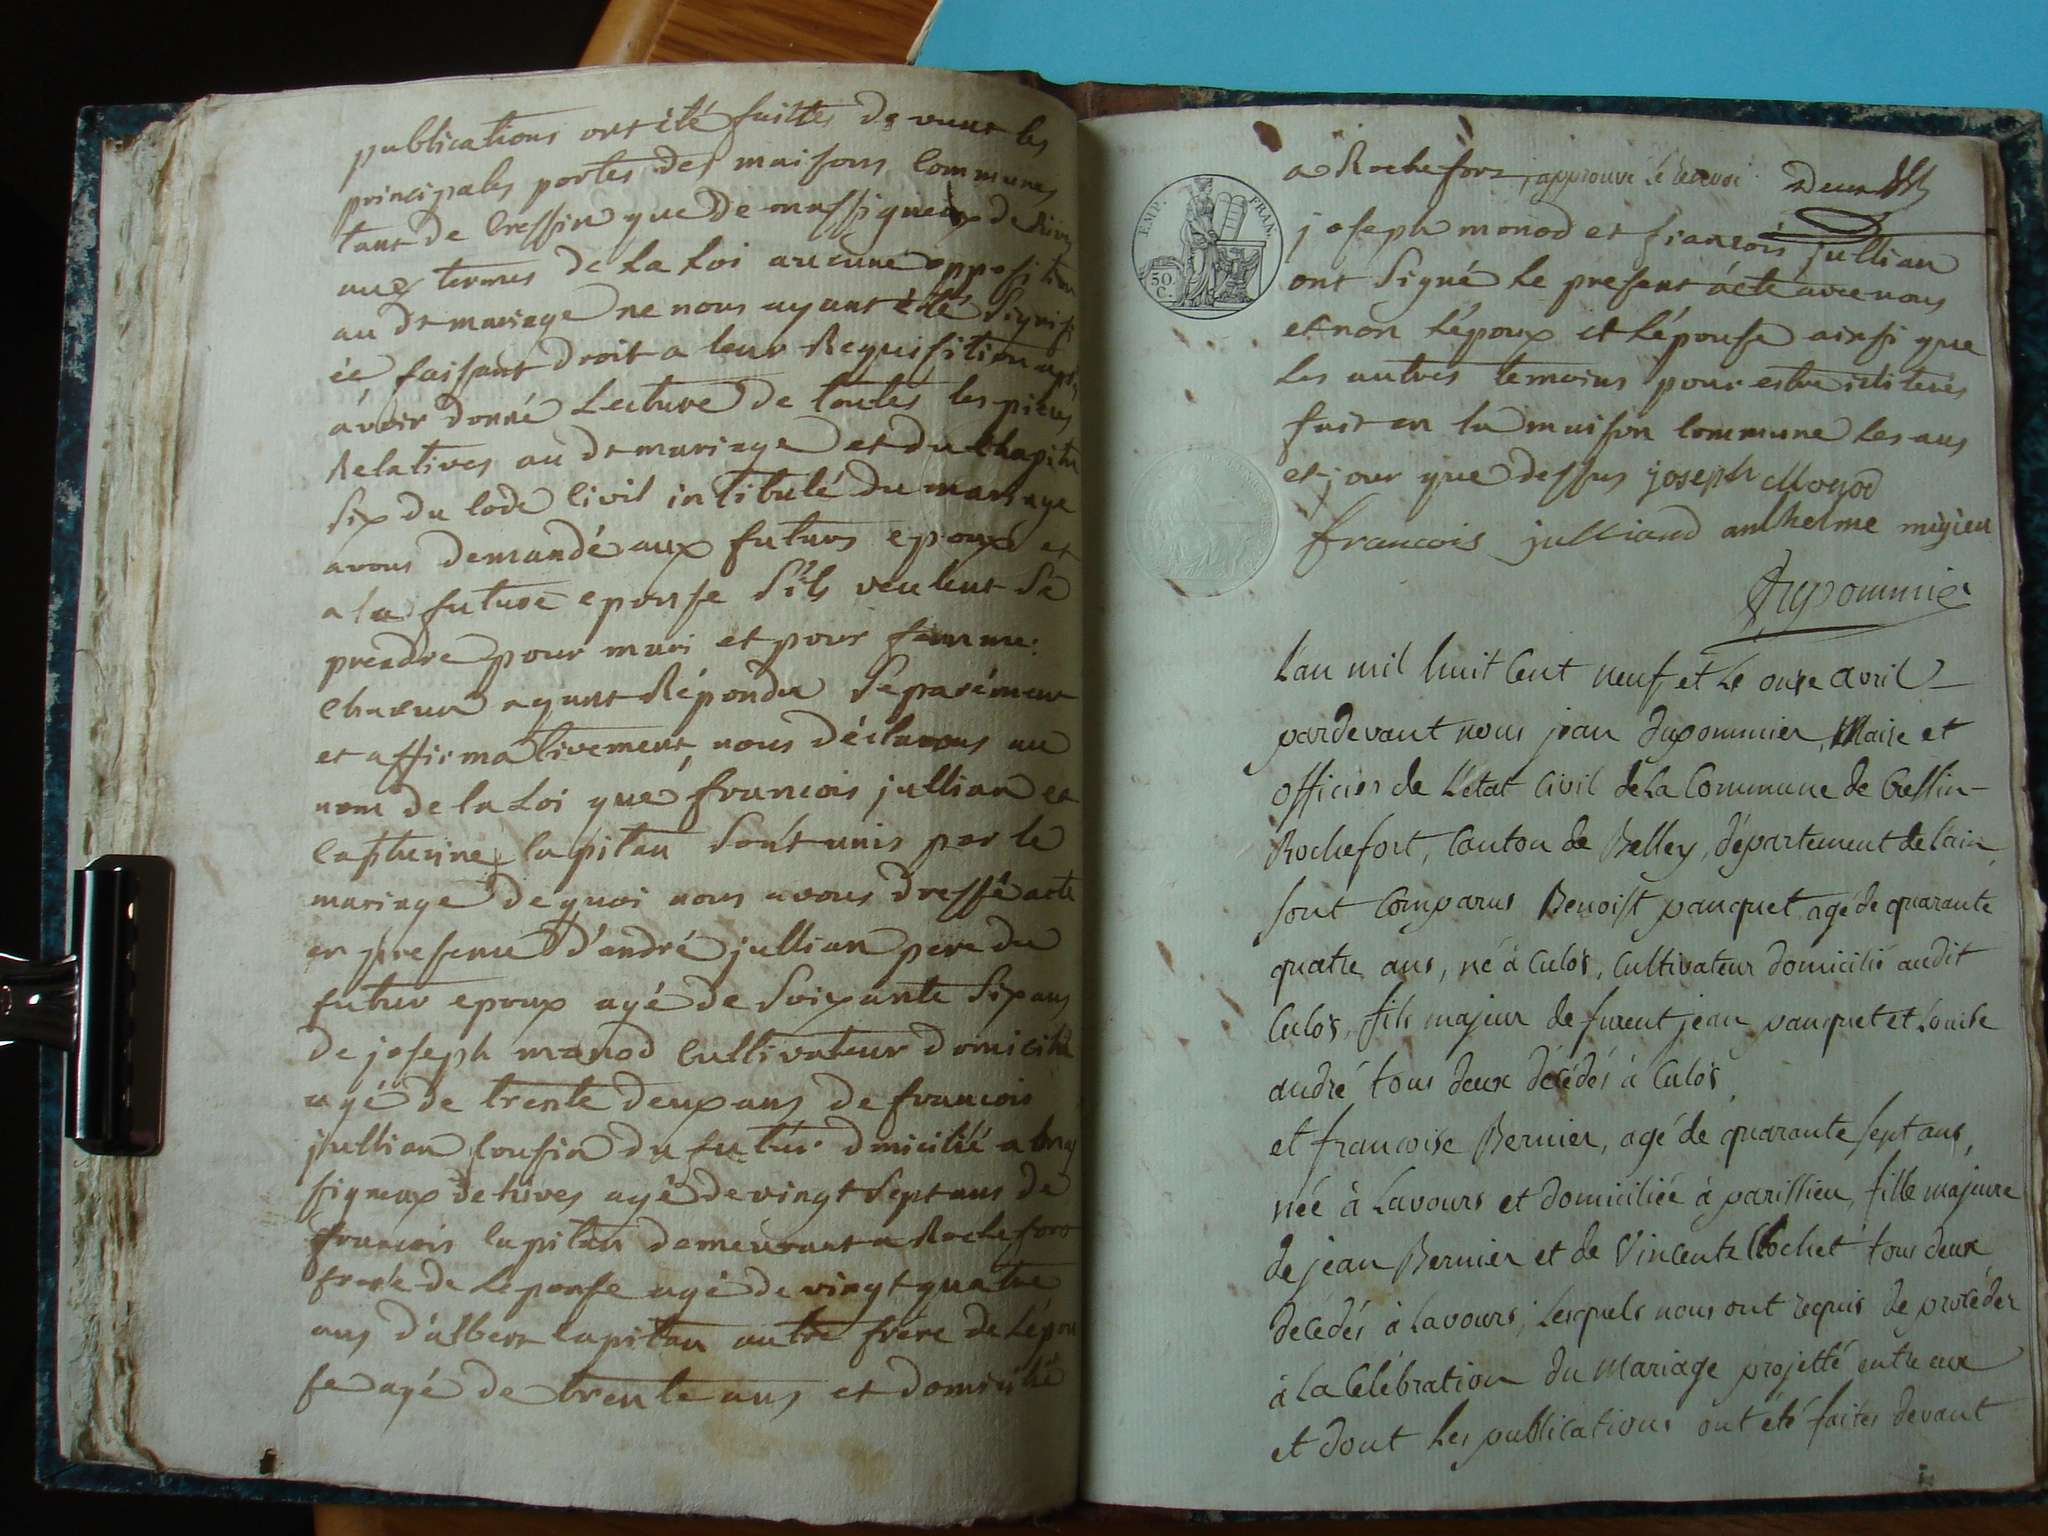 publications ont été faittes devant les
principales portes des maisons communes
tant de Cressin que de massigneux de Rives
aux termes de la Loi aucune opposition
au dt mariage ne nous ayant été Signifi
ée faisant droit a leur Requisition après
avoir donné Lecture de toutes les pieces
Relatives au dt mariage et du Chapitre
Six du Code Civil intitulé du mariage
avons demandé aux futurs epoux et
a la future epouse S'ils veulent Se
prendre pour mari et pour femme:
Chacun ayant Répondu Separément
et affirmativement, nous déclarons au
nom de la Loi que francois jullian et
Catherine Capitan Sont unis par le
mariage de quoi nous avons dressé acte
en presence d'andré jullian pere du
futur epoux agé de Soixante Six ans
de joseph monod Cultivateur domicilié
agé de trente deux ans de francois
jullian Cousin du futur domicilié a
signeux de rives agé de vingt Sept ans de
francois Capitan demeurant a Rochefort
frere de Lepouse agé de vingt quatre
ans d'albert Capitan autre frere de Lépou
se agé de trente ans et domicilié
a Rochefort, approuvé le renvoi
EMP. FRAN.
50 C.
joseph monod et francois jullian
ont Signé Le present acte avec nous
et non Lépoux et Lépouse ainsi que
Les autres temoins pour estre iliterés
fait en la maison Commune Les ans
et jour que dessus joseph Monod
francois julliand anthelme migieu
Dupommier
L'an mil huit Cent neuf, et Le onze avril
pardevant nous jean dupommier, Maire et
officier de L'état Civil de La Commune de Cressin-
Rochefort, Canton de Belley, département de Lain,
sont Comparus Benoist pauquet, agé de quarante
quatre ans, né à Culos, Cultivateur domicilié audit
Culos, fils majeur de furent jean pauquet et Louise
andré tous deux décédés à Culos,
et francoise Bernier, agé de quarante sept ans,
née à Lavours et domiciliée à parissieu, fille majeure
de jean Bernier et de Vincente Clochet tous deux
décédés à Lavours; Lesquels nous ont requis de procéder
à La Célébration du Mariage projetté entre eux
et dont Les publications ont été faites devant